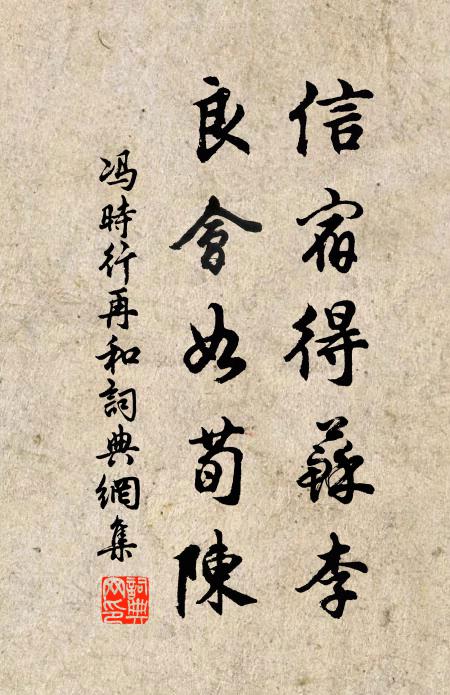 信宿得蘇李
良會如荀陳
冯時行再和詞典網集
詞典網印